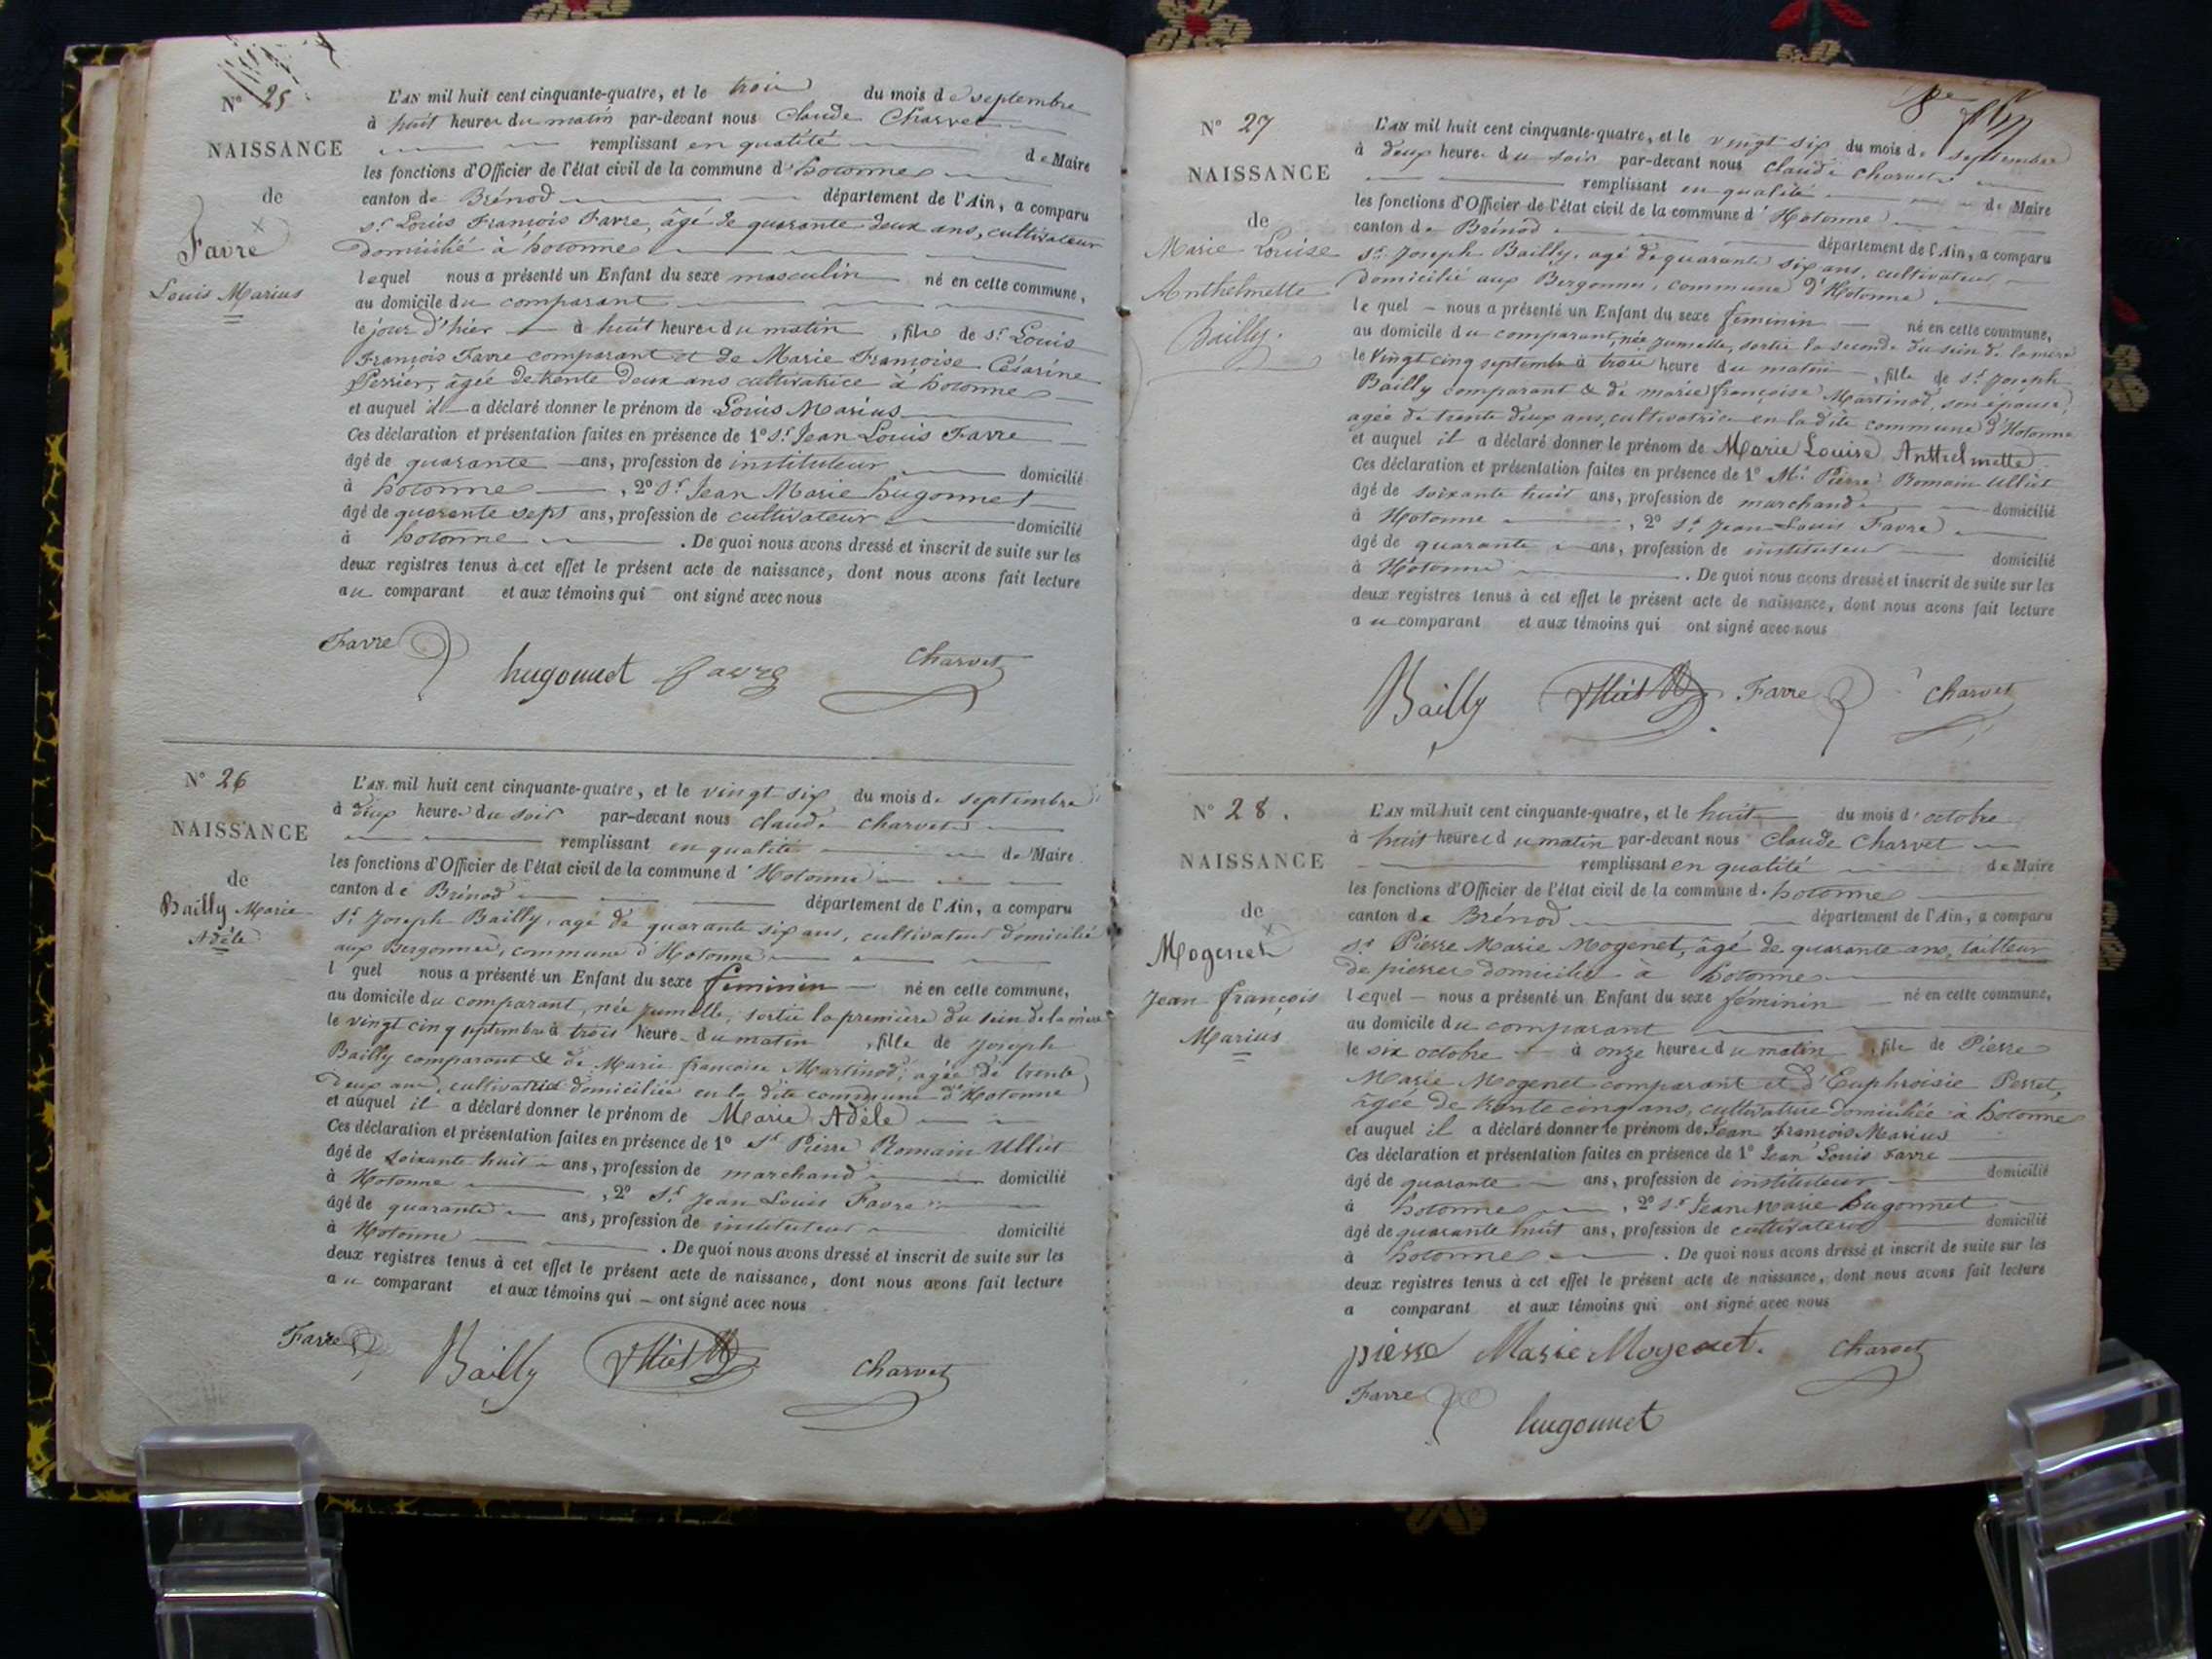 N° 25
NAISSANCE
de
Favre
Louis Marius
L'AN mil huit cent cinquante-quatre, et le trois du mois de septembre
à huit heures du matin par-devant nous Claude Charvet
remplissant en qualité de Maire
les fonctions d'Officier de l'état civil de la commune d'hotonnes
canton de Brénod département de l'Ain, a comparu
sr. Louis François Favre, âgé de quarante deux ans, cultivateur
domicilié à hotonnes
lequel nous a présenté un Enfant du sexe masculin né en cette commune,
au domicile du comparant
le jour d'hier à huit heures du matin, fils de sr. Louis
François Favre comparant et de Marie Françoise Césarine
Perrier, âgée de trente deux ans cultivatrice à hotonnes
et auquel il a déclaré donner le prénom de Louis Marius
Ces déclaration et présentation faites en présence de 1° Sr. Jean Louis Favre
âgé de quarante ans, profession de instituteur domicilié
à hotonnes, 2° Sr. Jean Marie hugonnet
âgé de quarante sept ans, profession de cultivateur domicilié
à hotonne. De quoi nous avons dressé et inscrit de suite sur les
deux registres tenus à cet effet le présent acte de naissance, dont nous avons fait lecture
au comparant et aux témoins qui ont signé avec nous
Favre hugonnet favre Charvet
N° 26
NAISSANCE
de
Bailly Marie
Adèle
L'AN mil huit cent cinquante-quatre, et le vingt six du mois de septembre
à deux heures du soir par-devant nous Claude Charvet
remplissant en qualité de Maire
les fonctions d'Officier de l'état civil de la commune d'Hotonne
canton de Brénod département de l'Ain, a comparu
Sr. Joseph Bailly, agé de quarante six ans, cultivateur domicilié
aux Bergonnes, commune d'Hotonne
l quel nous a présenté un Enfant du sexe féminin né en cette commune,
au domicile du comparant, née jumelle, sortie la première du sein de la mère
le vingt cinq septembre à trois heure du matin, fille de Joseph
Bailly comparant & de Marie françoise Martinod, agée de trente
deux ans, cultivatrice domiciliée en la dite commune d'Hotonne
et auquel il a déclaré donner le prénom de Marie Adèle
Ces déclaration et présentation faites en présence de 1° Sr. Pierre Romain Ulliet
âgé de soixante huit ans, profession de marchand domicilié
à Hotonne, 2° Sr. Jean Louis Favre
âgé de quarante ans, profession de instituteur domicilié
à Hotonne. De quoi nous avons dressé et inscrit de suite sur les
deux registres tenus à cet effet le présent acte de naissance, dont nous avons fait lecture
au comparant et aux témoins qui ont signé avec nous
Favre Bailly Ulliet Charvet
N° 27
NAISSANCE
de
Marie Louise
Anthelmette
Bailly.
L'AN mil huit cent cinquante-quatre, et le vingt six du mois de septembre
à deux heures du soir par-devant nous Claude Charvet
remplissant en qualité de Maire
les fonctions d'Officier de l'état civil de la commune d'Hotonne
canton de Brénod département de l'Ain, a comparu
Sr. Joseph Bailly, agé de quarante six ans, cultivateur
domicilié aux Bergonnes, commune d'Hotonne
le quel nous a présenté un Enfant du sexe féminin né en cette commune,
au domicile du comparant, née jumelle, sortie la seconde du sein de la mère
le vingt cinq septembre à trois heure du matin, fille de Sr. Joseph
Bailly comparant & de marie françoise Martinod, son épouse,
agée de trente deux ans, cultivatrice en la dite commune d'Hotonne
et auquel il a déclaré donner le prénom de Marie Louise Anthelmette
Ces déclaration et présentation faites en présence de 1° Mr. Pierre Romain Ulliet
âgé de soixante huit ans, profession de marchand domicilié
à Hotonne, 2° Sr. Jean Louis Favre
âgé de quarante ans, profession de instituteur domicilié
à Hotonne. De quoi nous avons dressé et inscrit de suite sur les
deux registres tenus à cet effet le présent acte de naissance, dont nous avons fait lecture
au comparant et aux témoins qui ont signé avec nous
Bailly Ulliet Favre Charvet
N° 28.
NAISSANCE
de
Mogenet
Jean françois
Marius
L'AN mil huit cent cinquante-quatre, et le huit du mois d'octobre
à huit heures du matin par-devant nous Claude Charvet
remplissant en qualité de Maire
les fonctions d'Officier de l'état civil de la commune d.hotonnes
canton de Brénod département de l'Ain, a comparu
sr Pierre Marie Mogenet, âgé de quarante ans, tailleur
de pierres domicilié à hotonnes
lequel nous a présenté un Enfant du sexe féminin né en cette commune,
au domicile du comparant
le six octobre à onze heures du matin, fils de Pierre
Marie Mogenet comparant et d'Euphroisie Perret,
âgée de trente cinq ans, cultivatrice domiciliée à hotonnes
et auquel il a déclaré donner le prénom de Jean François Marius
Ces déclaration et présentation faites en présence de 1° Jean Louis Favre
âgé de quarante ans, profession de instituteur domicilié
à hotonnes, 2° Sr. Jean Marie hugonnet
âgé de quarante huit ans, profession de cultivateur domicilié
à hotonnes. De quoi nous avons dressé et inscrit de suite sur les
deux registres tenus à cet effet le présent acte de naissance, dont nous avons fait lecture
a comparant et aux témoins qui ont signé avec nous
pierre Marie Mogenet. Charvet
Favre hugonnet